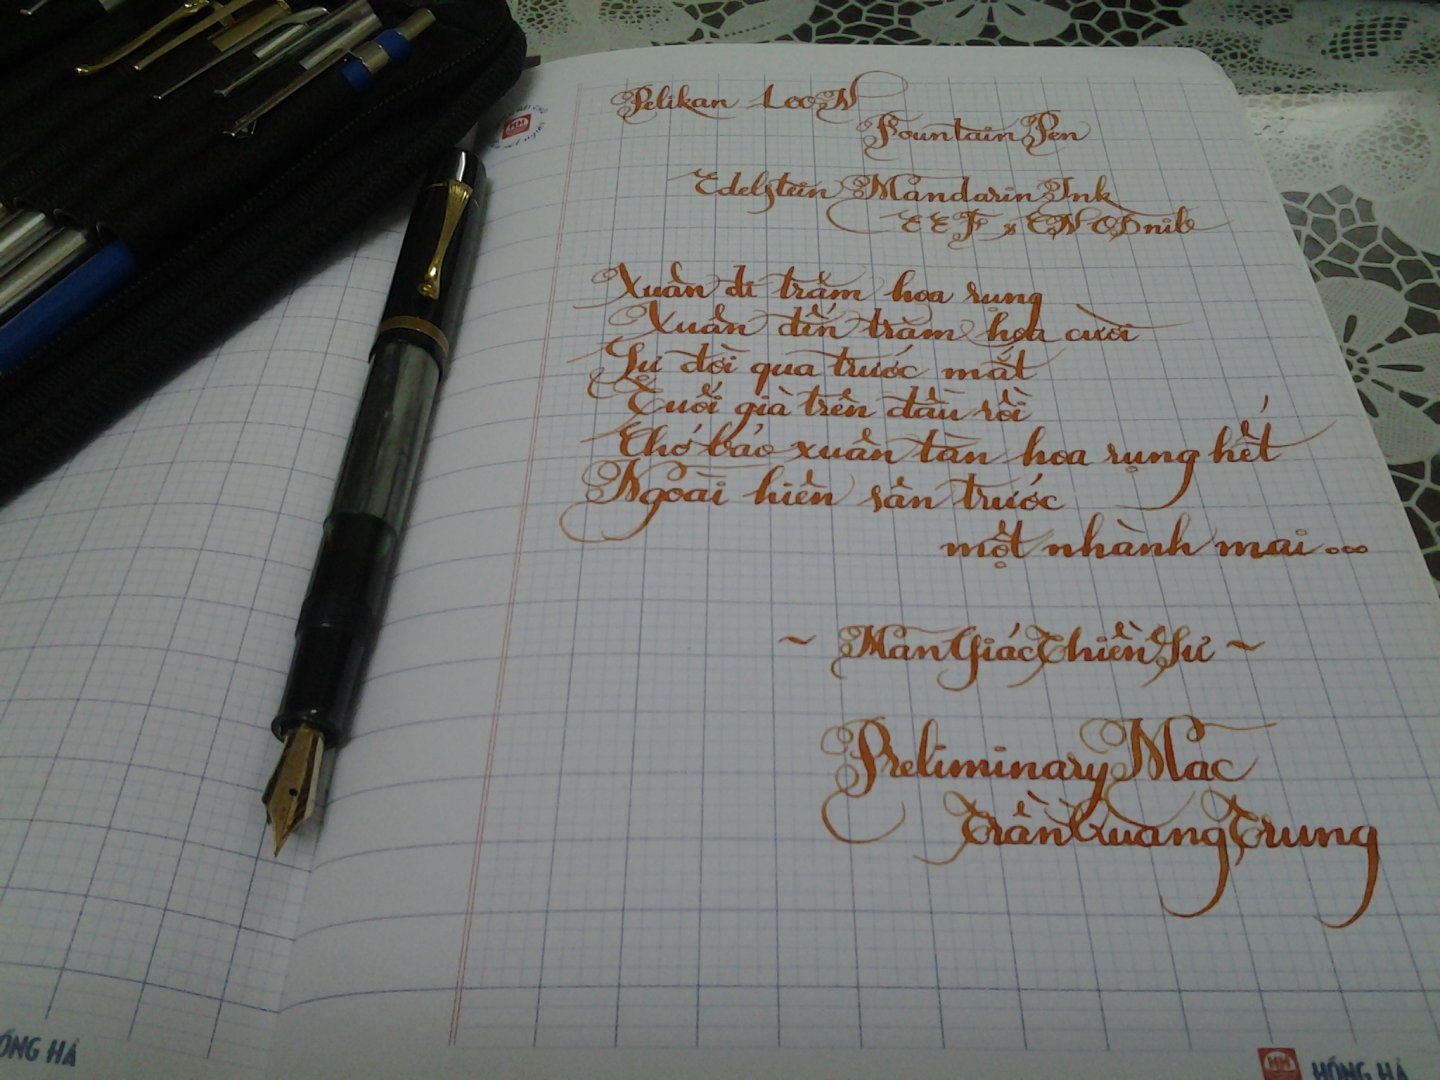 Pelikan 400N
Fountain Pen
Edelstein Mandarin Ink
EEF x EN OB nib
Xuân đi trăm hoa rụng
Xuân đến trăm hoa cười
Sự đời qua trước mắt
Tuổi già trên đầu rồi
Chớ bảo xuân tàn hoa rụng hết
Ngoài hiên sân trước
một nhành mai...
~ Mãn Giác Thiền Sư ~
Preliminary Mac
Trần Quang Trung
HỒNG HÀ
HỒNG HÀ